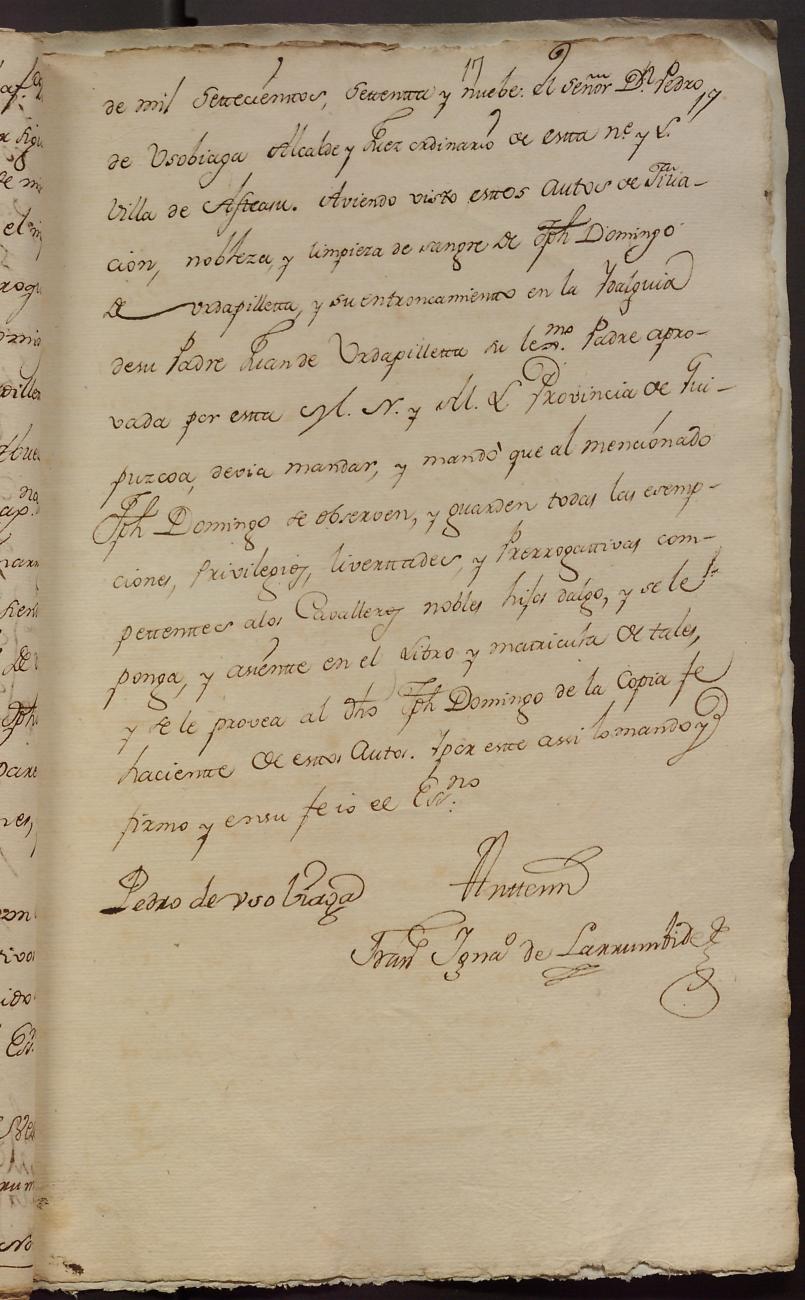 17
de mil Settecienttos, Settentta y nuebe. el Señor Dn. Pedro
de Usobiaga Alcalde y Juez ordinario de estta Ne. y L.
Villa de Asteasu. Aviendo visto esttos Autos de filia-
cion, nobleza, y limpieza de sangre de Jph Domingo
de Urdapilletta, y su entroncamientto en la Ydalguia
desu Padre Juan de Urdapilletta su lexmo. Padre apro-
vada por estta M. N. y M. L. Provincia de Gui-
puzcoa, devia mandar, y mandó que al mencionado
Jph Domingo se observen, y guarden todas las esemp-
ciones, Privilegios, liverttades, y Prerrogattivas com-
pettenttes alos Cavalleros nobles hijos dalgo, y se le
ponga, y asientte en el Libro y matricula de tales,
y se le provea al dho Jph Domingo de la Copia fe
hacientte de esttos Autos. Y por este assi lo mando y
firmo y en su fe io el Essno.
Pedro de Usobiaga Anttemi
Franco Ignao de Larrumbide